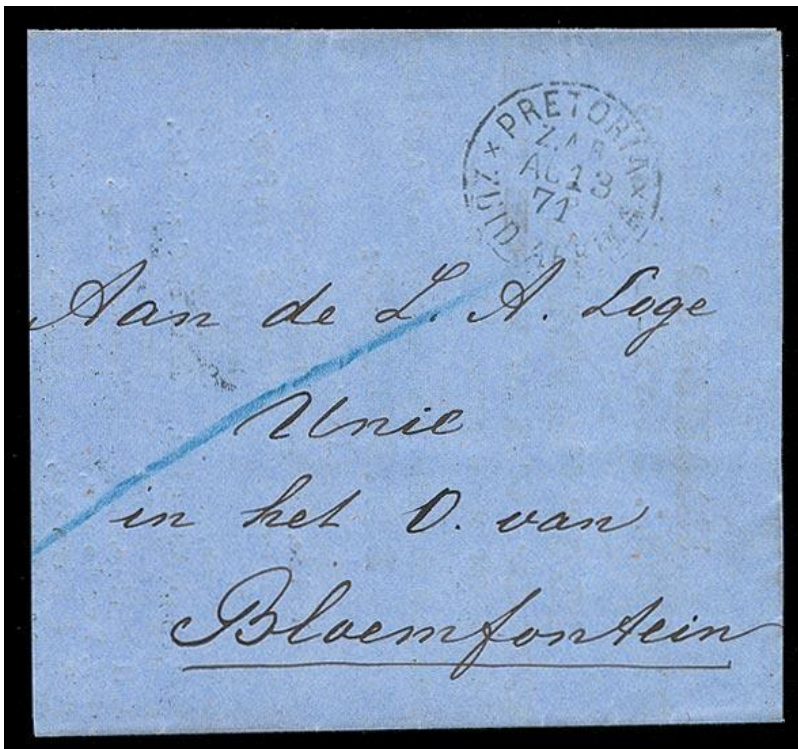 × PRETORIA ×
Z.A.R
AU 13
71
ZUID
Aan de L. A. Loge
Unie
in het O. van
Bloemfontein